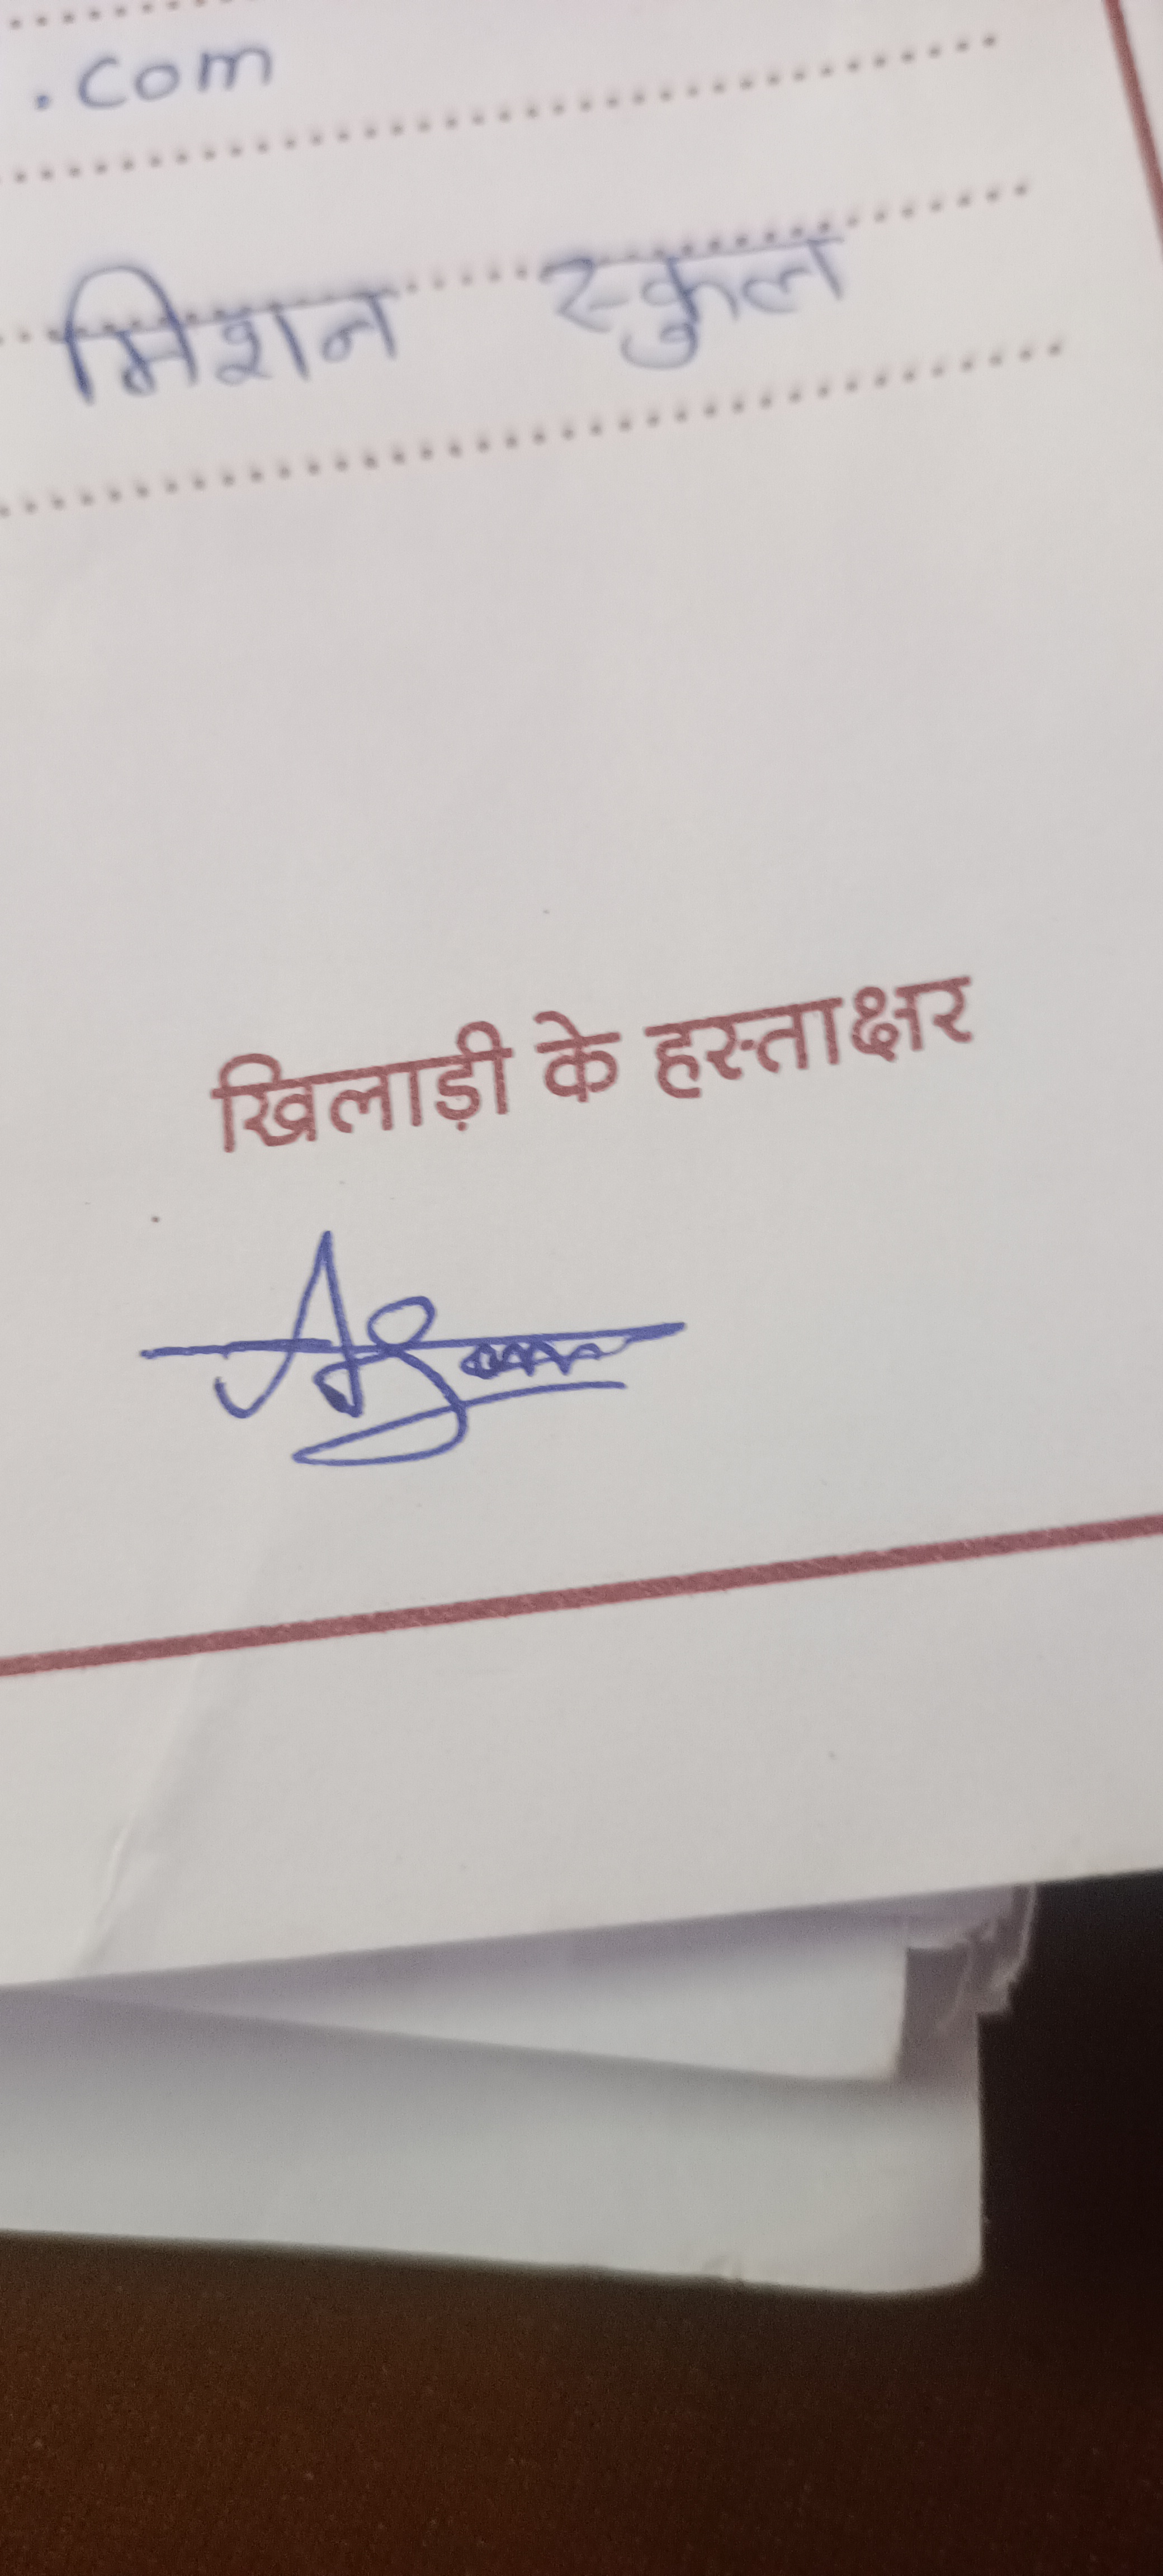 .com
मिशन स्कुल
खिलाड़ी के हस्ताक्षर